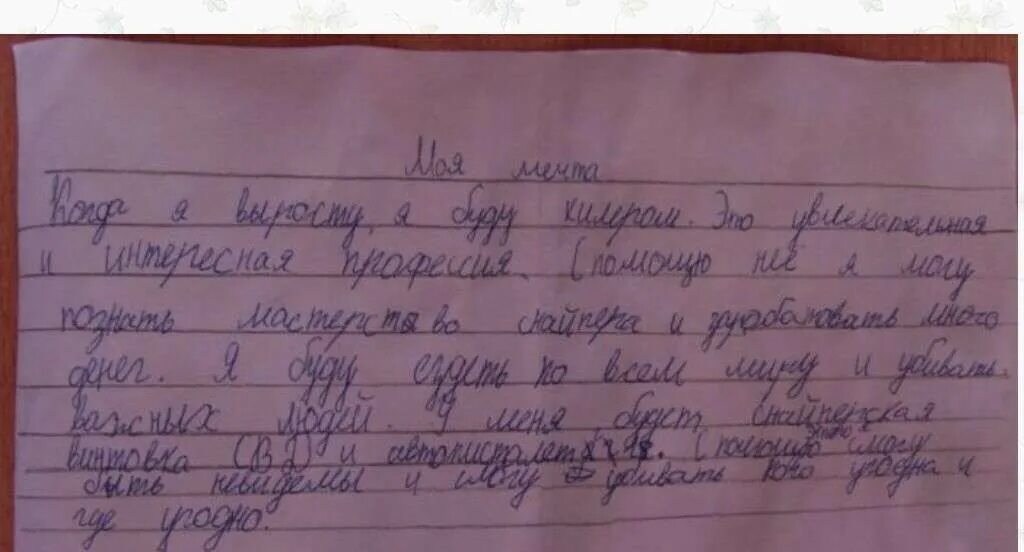 Моя мечта
Когда я выросту, я буду килером. Это увлекательная
и интересная профессия. С помощю неё я могу
познать мастерство снайпера и зарабатовать много
денег. Я буду ездеть по всем миру и убивать
важных людей. У меня будет снайперская
винтовка (В2) и автописталет. С помощю этого смогу
быть невидемы и смогу убивать кого угодна и
где угодно.